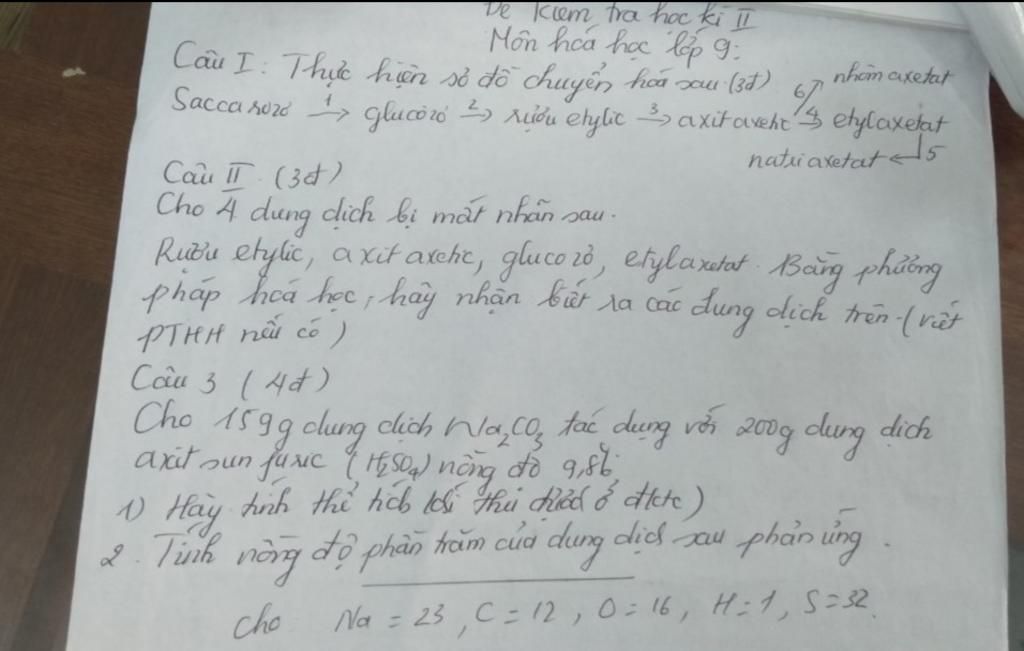 Đề kiểm tra học kì II
Môn hoá học lớp 9:
Câu I: Thực hiện sơ đồ chuyển hoá sau (3đ)
nhôm axetat
6
Saccarozơ 1→ glucozơ 2→ rượu etylic 3→ axit axetic 4→ etylaxetat
natri axetat ← 5
Câu II (3đ)
Cho 4 dung dịch bị mất nhãn sau.
Rượu etylic, axit axetic, glucozơ, etylaxetat. Bằng phương
pháp hoá học, hãy nhận biết ra các dung dịch trên (viết
PTHH nếu có)
Câu 3 (4đ)
Cho 159g dung dịch Na₂CO₃ tác dụng với 200g dung dịch
axit sunfuric (H₂SO₄) nồng độ 9,8%
1) Hãy tính thể tích khí thu được ở đktc)
2. Tính nồng độ phần trăm của dung dịch sau phản ứng.
Cho Na = 23, C = 12, O = 16, H = 1, S = 32.